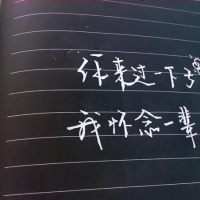 你来过一下子
我怀念一辈